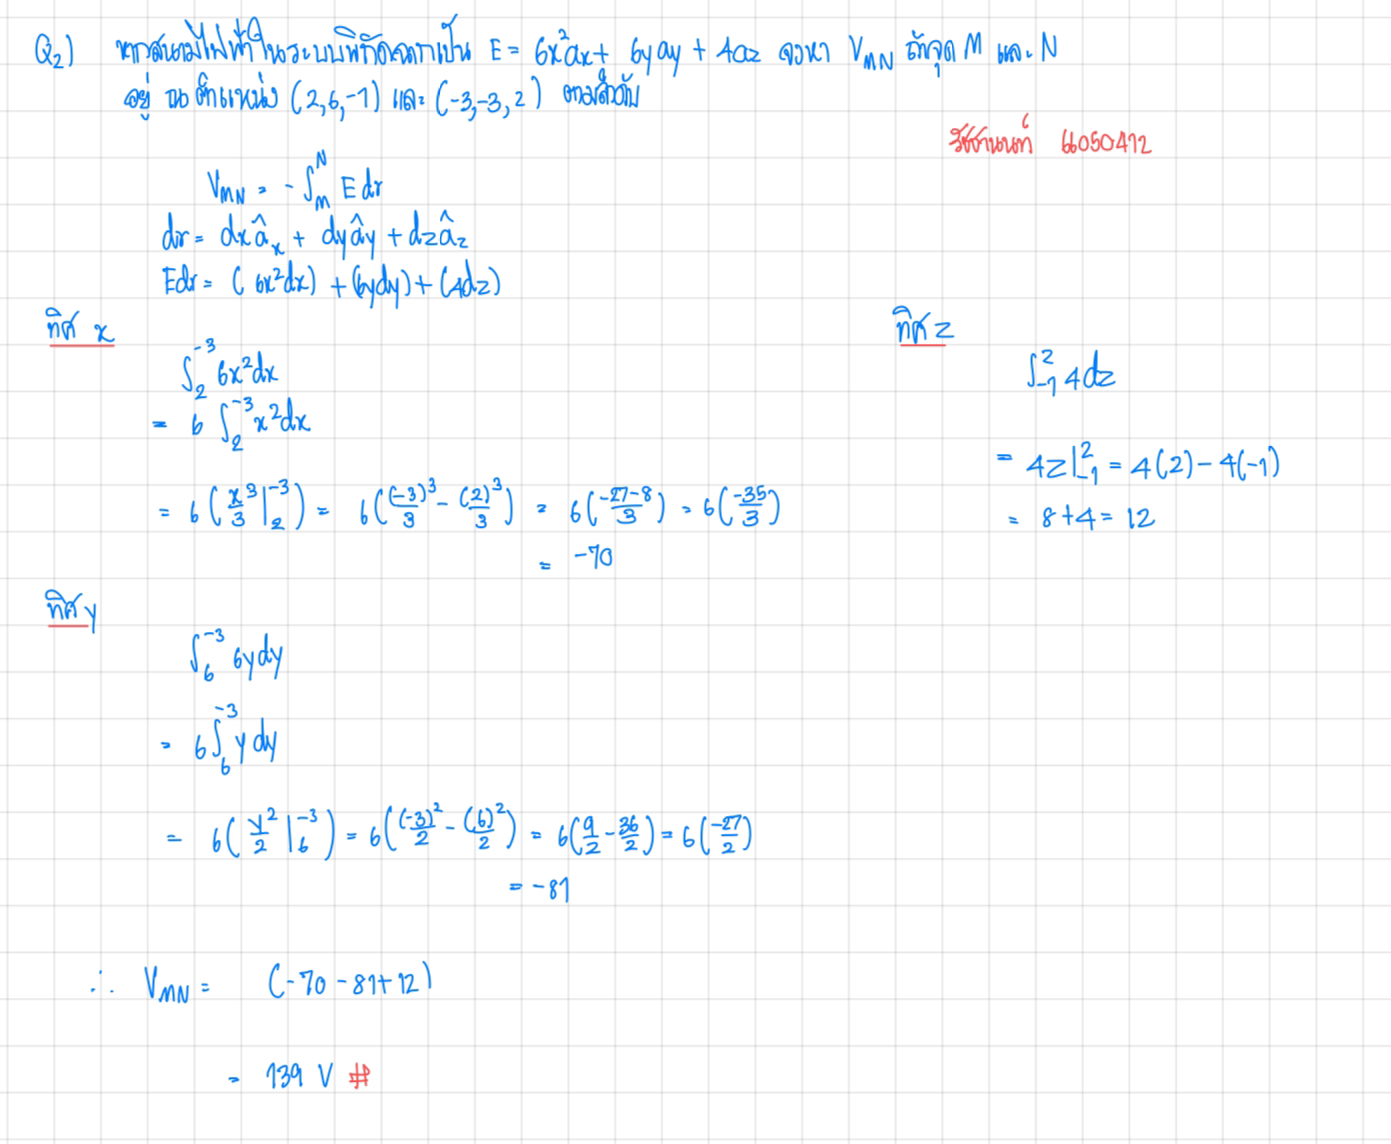 Q2) หากสนามไฟฟ้าในระบบพิกัดฉากเป็น E = 6x²ax + 6yay + 4az จงหา V_MN ถ้าจุด M และ N
อยู่ ณ ตำแหน่ง (2,6,-1) และ (-3,-3,2) ตามลำดับ
รัชชานนท์ 66050412
V_MN = -∫_M^N E dr
dr = dxâ_x + dyây + dzâ_z
Edr = (6x²dx) + (6ydy) + (4dz)
ทิศ x
∫_2^-3 6x²dx
= 6 ∫_2^-3 x²dx
= 6(x³/3 |_2^-3) = 6((-3)³/3 - (2)³/3) = 6(-27-8/3) = 6(-35/3)
= -70
ทิศ y
∫_6^-3 6ydy
= 6∫_6^-3 y dy
= 6(y²/2 |_6^-3) = 6((-3)²/2 - (6)²/2) = 6(9/2 - 36/2) = 6(-27/2)
= -81
ทิศ z
∫_-1^2 4dz
= 4z|_-1^2 = 4(2) - 4(-1)
= 8+4 = 12
∴ V_MN = (-70 -81+12)
= 139 V #